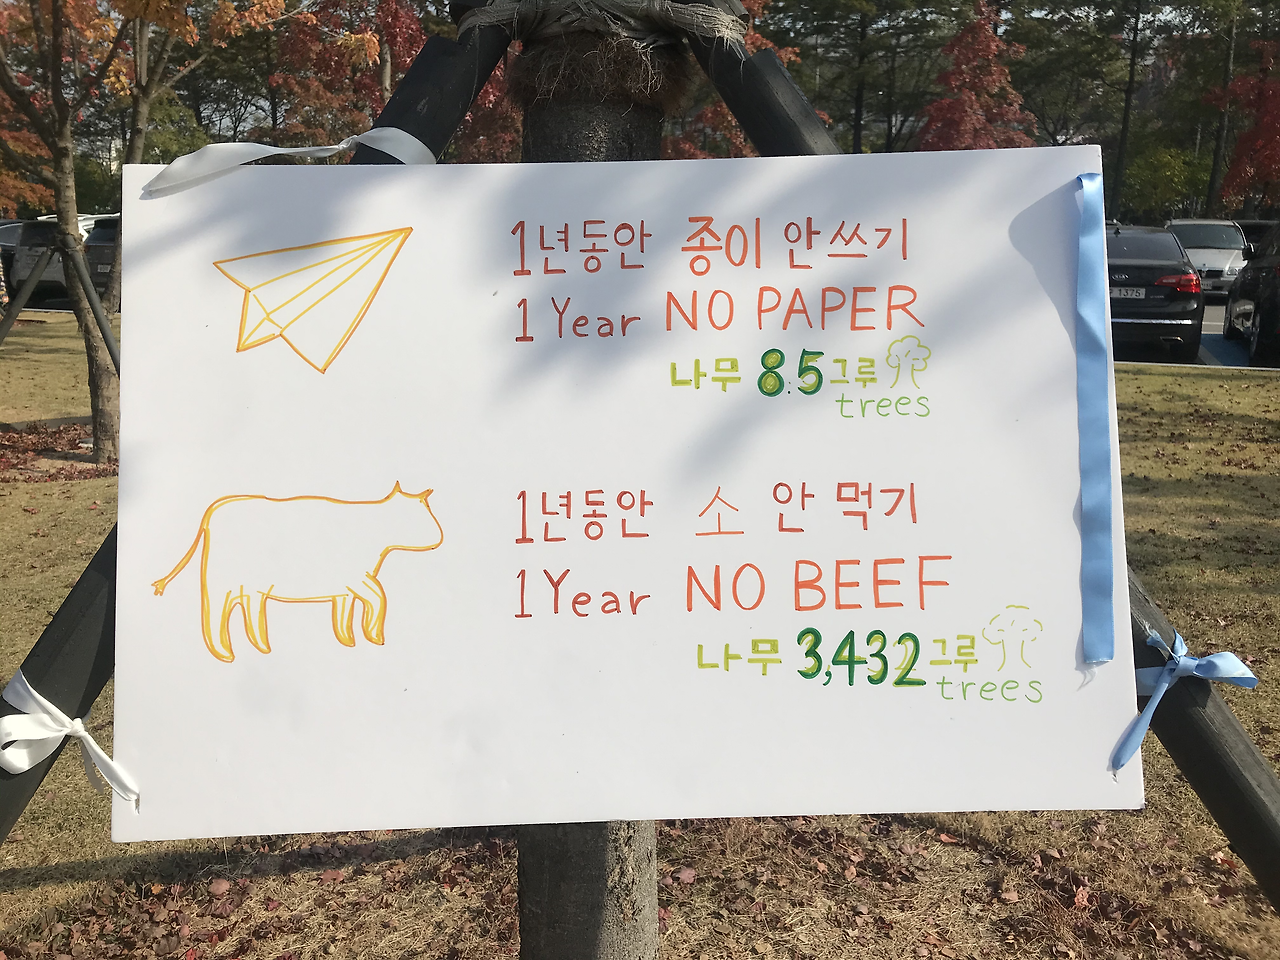 1년동안 종이 안쓰기
1 Year NO PAPER
나무 8.5그루
trees
1년동안 소 안 먹기
1 Year NO BEEF
나무 3,432그루
trees
1375